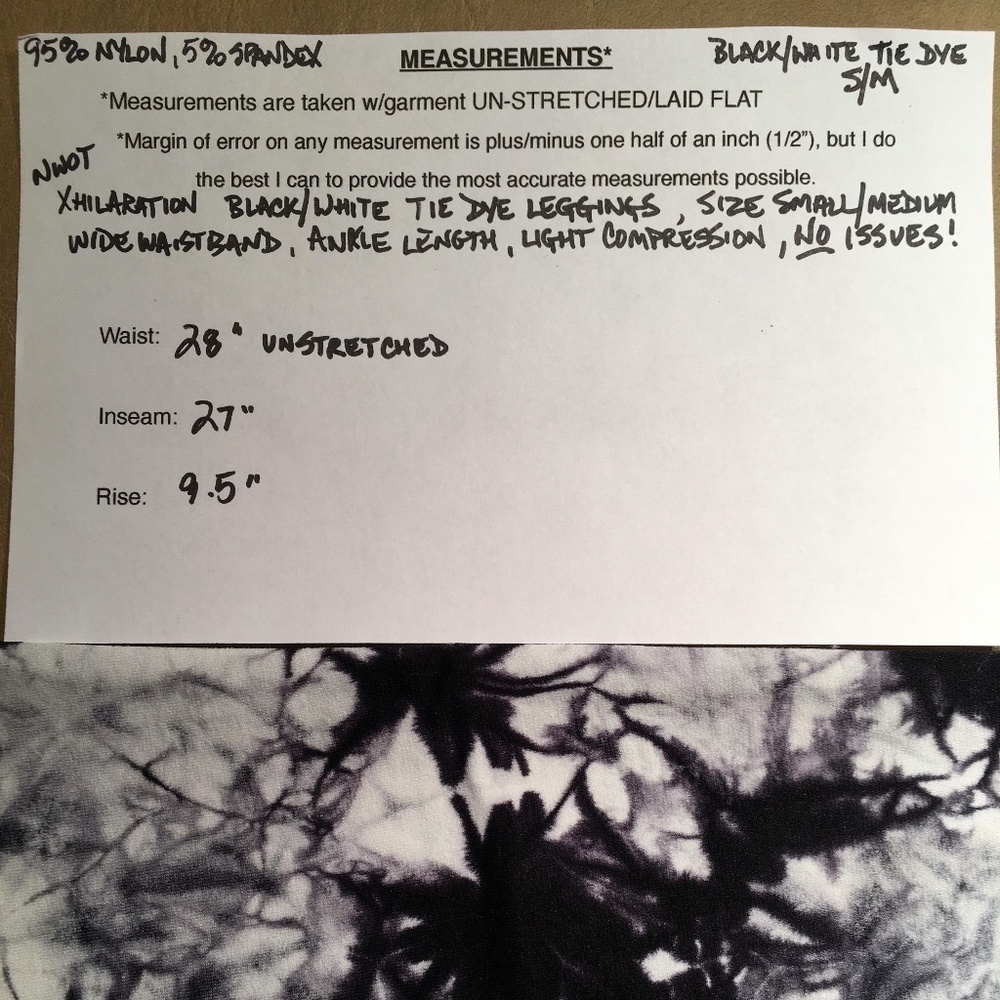 95% NYLON, 5% SPANDEX
MEASUREMENTS*
BLACK/WHITE TIE DYE
S/M
*Measurements are taken w/garment UN-STRETCHED/LAID FLAT
*Margin of error on any measurement is plus/minus one half of an inch (1/2”), but I do
the best I can to provide the most accurate measurements possible.
NWOT
XHILARATION BLACK/WHITE TIE DYE LEGGINGS, SIZE SMALL/MEDIUM
WIDE WAISTBAND, ANKLE LENGTH, LIGHT COMPRESSION, NO ISSUES!
Waist: 28" UNSTRETCHED
Inseam: 27"
Rise: 9.5"